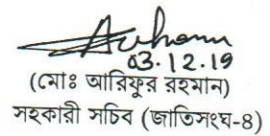 03.12.19
(মোঃ আরিফুর রহমান)
সহকারী সচিব (জাতিসংঘ-৪)